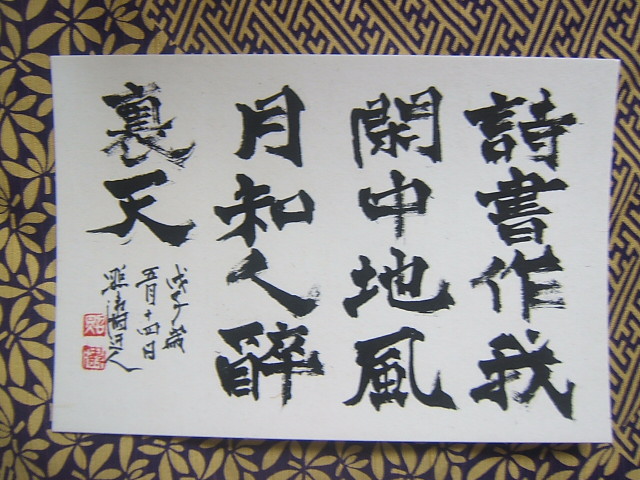 詩書作我
閑中地風
月知人醉
裏天
戊子歳
五月十四日